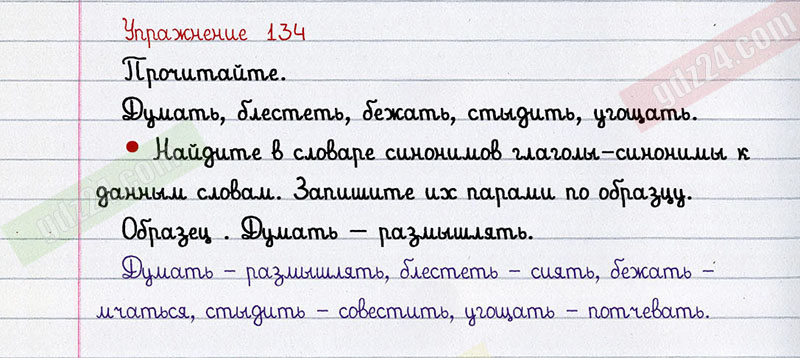 Упражнение 134
gdz24.com
Прочитайте.
Думать, блестеть, бежать, стыдить, угощать.
• Найдите в словаре синонимов глаголы-синонимы к
данным словам. Запишите их парами по образцу.
gdz24.com
Образец . Думать – размышлять.
Думать – размышлять, блестеть – сиять, бежать –
мчаться, стыдить – совестить, угощать – потчевать.